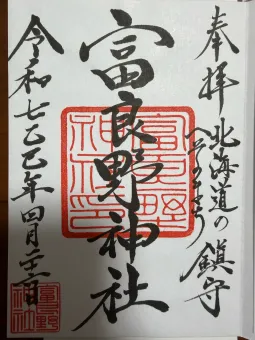 奉拝
北海道の
へそのまち
鎮守
富良野神社
富良野神社印
令和七乙巳年四月二十二日
富良野神社